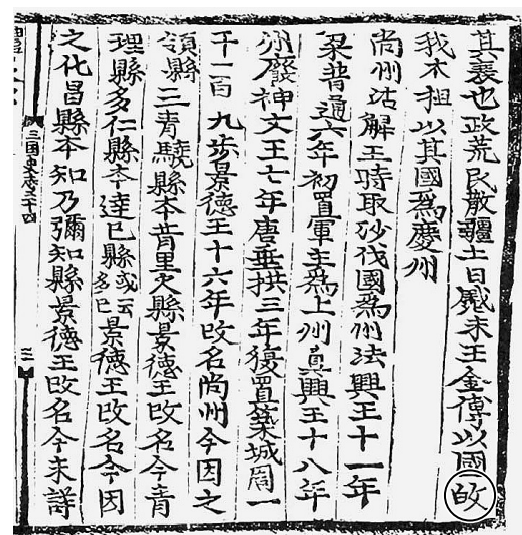 其衰也政荒民散疆土日蹙末王金傅以國
我太祖以其國爲慶州
尚州沾解王時取沙伐國爲州法興王十一年
梁普通六年初置軍主爲上州真興王十八年
州廢神文王七年唐垂拱三年復置築城周一
千一百九歩景德王十六年攺名尚州今因之
領縣三青驍縣本昔里火縣景德王攺名今青
理縣多仁縣本達已縣或云多已景德王攺名今因
之化昌縣本知乃彌知縣景德王攺名今未詳
三国史卷三十四
三